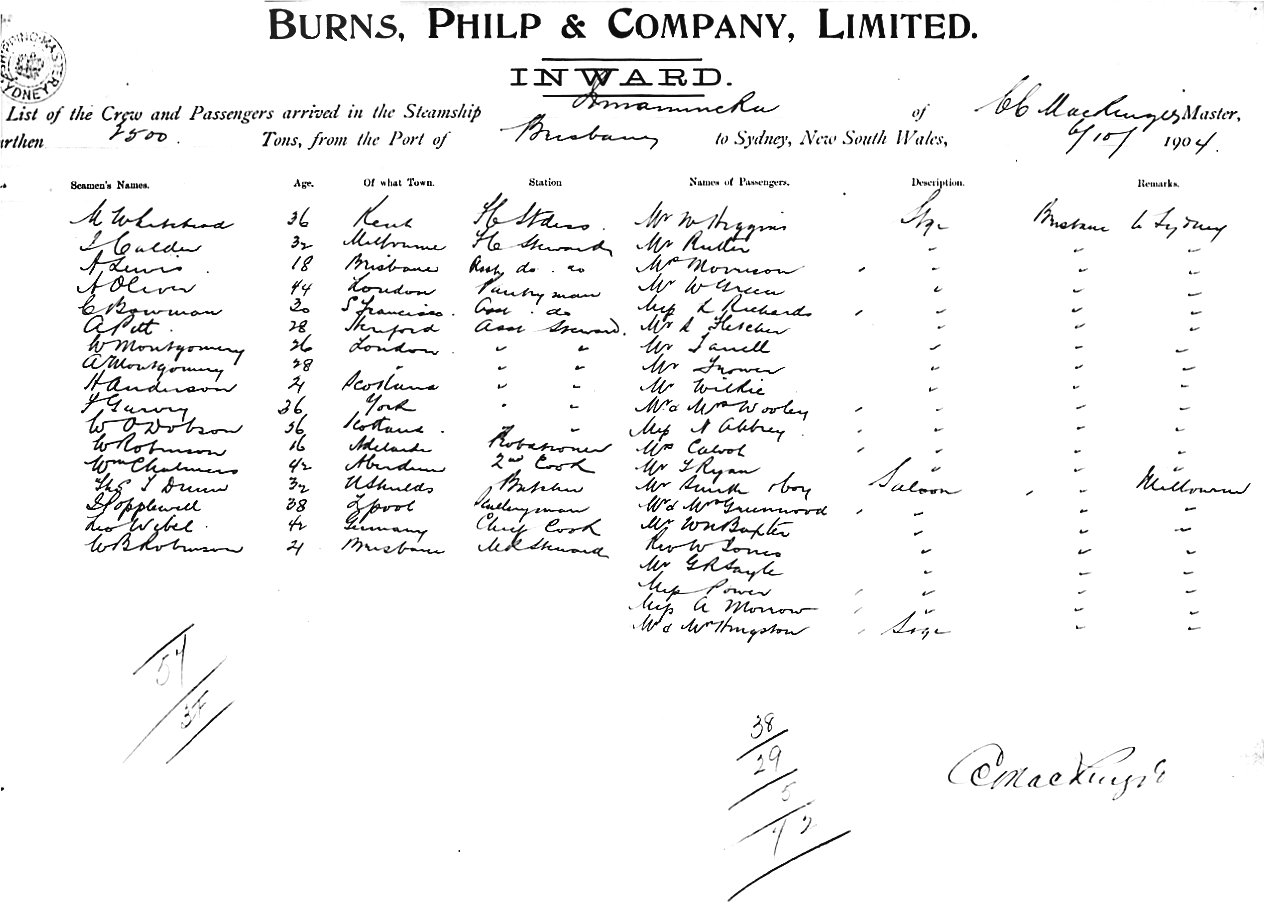 BURNS, PHILP & COMPANY, LIMITED.
INWARD.
SHIPPING MASTER SYDNEY
List of the Crew and Passengers arrived in the Steamship Innamincka of CC MacKenzie Master,
urthen 2500 Tons, from the Port of Brisbane to Sydney, New South Wales, 6/10/ 1904.
Seamen's Names. Age. Of what Town. Station Names of Passengers. Description. Remarks.
M Whitehead 36 Kent FC Stdess. Mr W Higgins Stge Brisbane to Sydney
J Calder 32 Melbourne FC Steward Mr Rutter " " "
A Lewis 18 Brisbane do. do Mrs Morrison " " "
A Oliver 44 London Pantryman Mr W Green " " "
C Bowman 30 S Francisco. Asst. do Miss L Richards " " "
A Pitt 28 Hereford Asst Steward. Mr L Fletcher " " "
W Montgomery 26 London " " Mr " " "
A Montgomery 28 " " " Mr Trower " " "
H Anderson 21 Scotland " " Mr Wilkie " " "
36 York " " Mr & Mrs Wooley " " "
W O Dobson 36 Scotland. " " Miss N Abbrey " " "
W Robinson 16 Adelaide Probationer Mrs " " "
Wm Chalmers 42 Aberdeen 2nd Cook Mr T Ryan " " "
32 N Shields Butcher Mr Smith & boy Saloon " " Melbourne
Popplewell 38 L'pool Mr & Mrs Greenwood " " "
Leo Webel. 42 Germany Chief Cook Mr Wm Baxter " " "
W B Robinson 21 Brisbane Steward Rev W Jones " " "
Mr G R Sayle " " "
Miss Power " " "
Miss A Morrow " " "
Mr & Mrs Hingston Stge " "
57
37
38
29
5
72
C MacKenzie